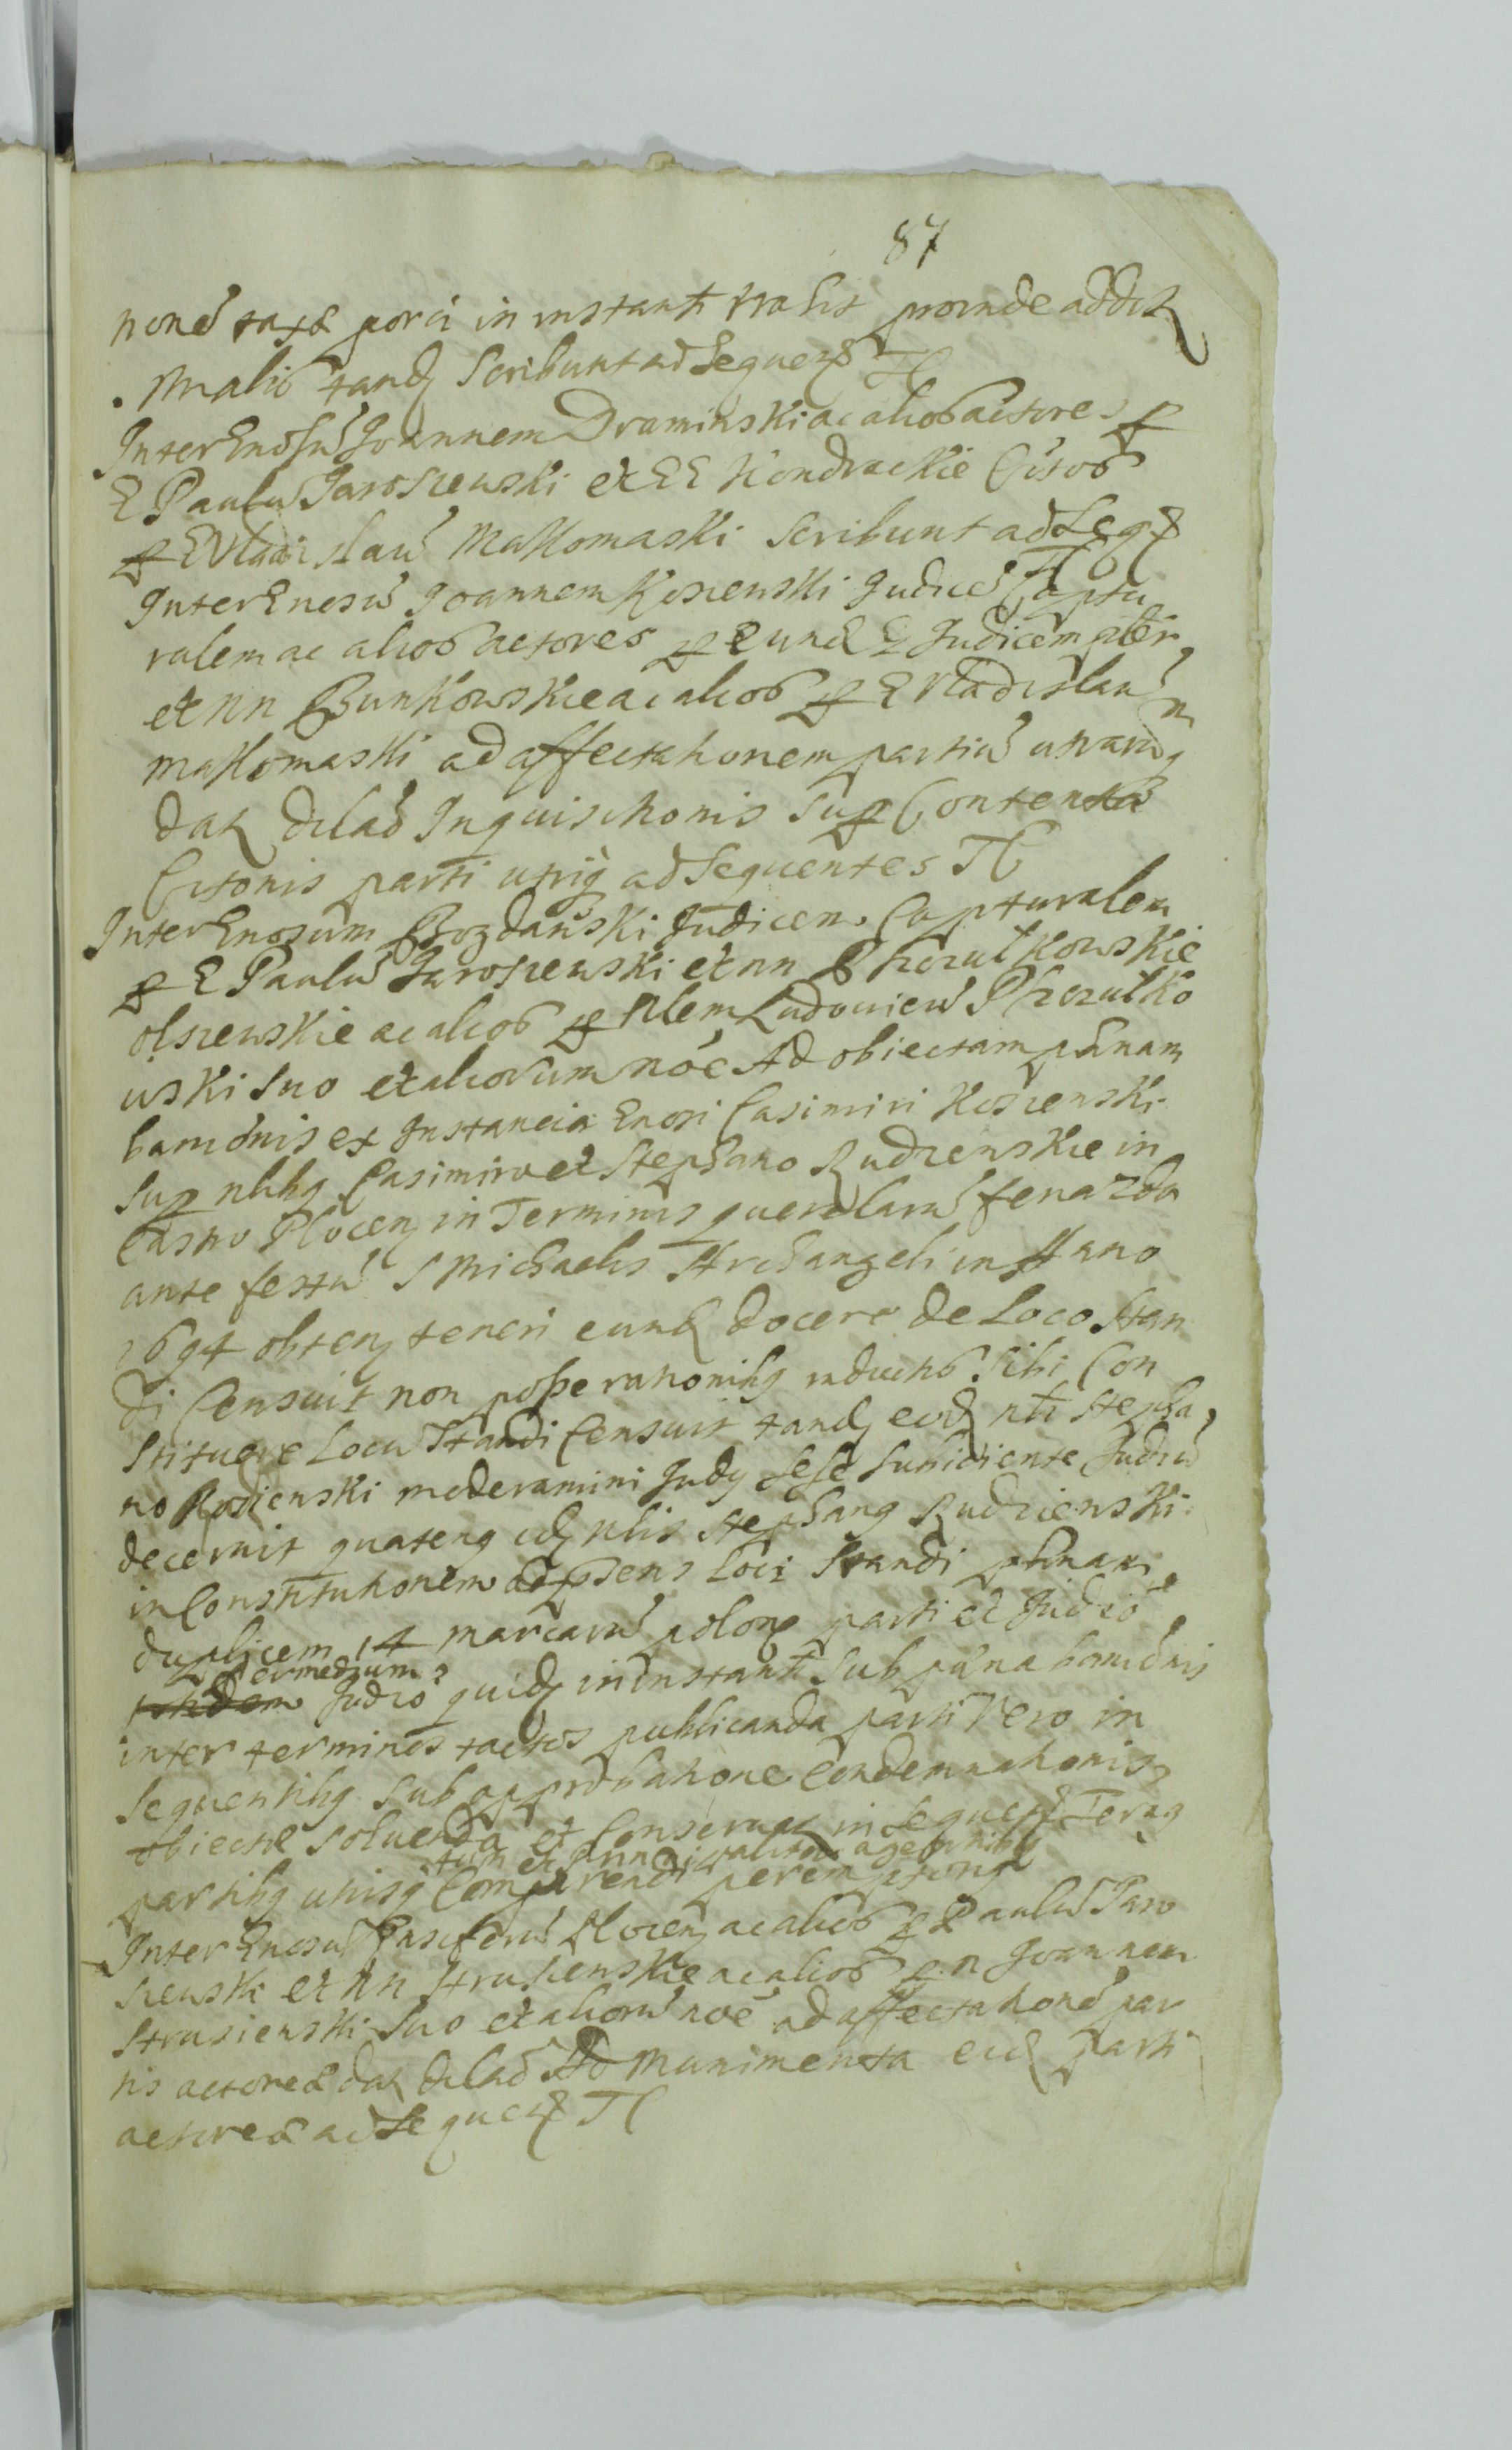 87
noně taxæ porci in instanti valit proinde addit
malio tandẽ Scribunt ad Sequeñ TC
Inter Gnosũ Joannem Draminski ac alios actores p
G Paulũ Jaroszewski et GG Kondrackie Citos
p G Vladislaũ Makomaski Scribunt ad Seqũ TC
Inter Gnosũ Joannem Koszenski Judicẽ Captu
ralem ac alios actores p eund G Judicem plẽr
et NN Bunkowskie ac alios p G Vladislaũ
Makomaski ad affectationem partiũ utrarũq
dat dilaõ Inquisitionis Sup Contenta
Citonis parti utriq ad Sequentes TC
Inter Gnosum Bogdanski Judicem Capturalem
p G Paulũ Jaroszewski et NN
olszewskie ac alios p Nlem Ludovicũ
wski suo et aliorum nõe Ad obiectam põnam
banõnis ex Instancia Gnosi Casimiri Koszenski
Sup nlibq Casimiro et Stephano Rudzienskie in
Castro Plocen in Terminis querelarũ feria 2da
ante festũ S Michaelis Archangeli in Anno
1694 obten teneri eund docere de Loco Stan
di Censuit non posse rationibq inductis sibi Con
stituere Locũ Standi Censuit tand eod nli Stepha
no Rodzienski moderamini Judy sese subiiciente Judiũ
decernit quatenq id nlis Stephanq Rudzienski
in Constitutionem adpsens loci Standi põnam
duplicem 14 marcarũ polon parti et Judiõ
ibidem Judiõ quid in instanti Sub põna banõnis
intermedium
inter terminos tactos publicanda parti Vero in
Sequentibq Sub approbatione Condemnationis
obiectæ soluenda et Conseruat in sequeñ Termõ
partibq utrisq Comparendi peremptoriũ
tum et principaliter agentibq
Inter Gnosũ Ensiferũ Plocen ac alios p Paulũ Jaro
szewski et NN Strusienskie ac alios p n Joannem
Strusienski suo et aliorũ nõe ad affectationẽ par
tis actoreæ dat dilaõ Ad Munimenta eid parti
actoreæ ad Sequeñ TC